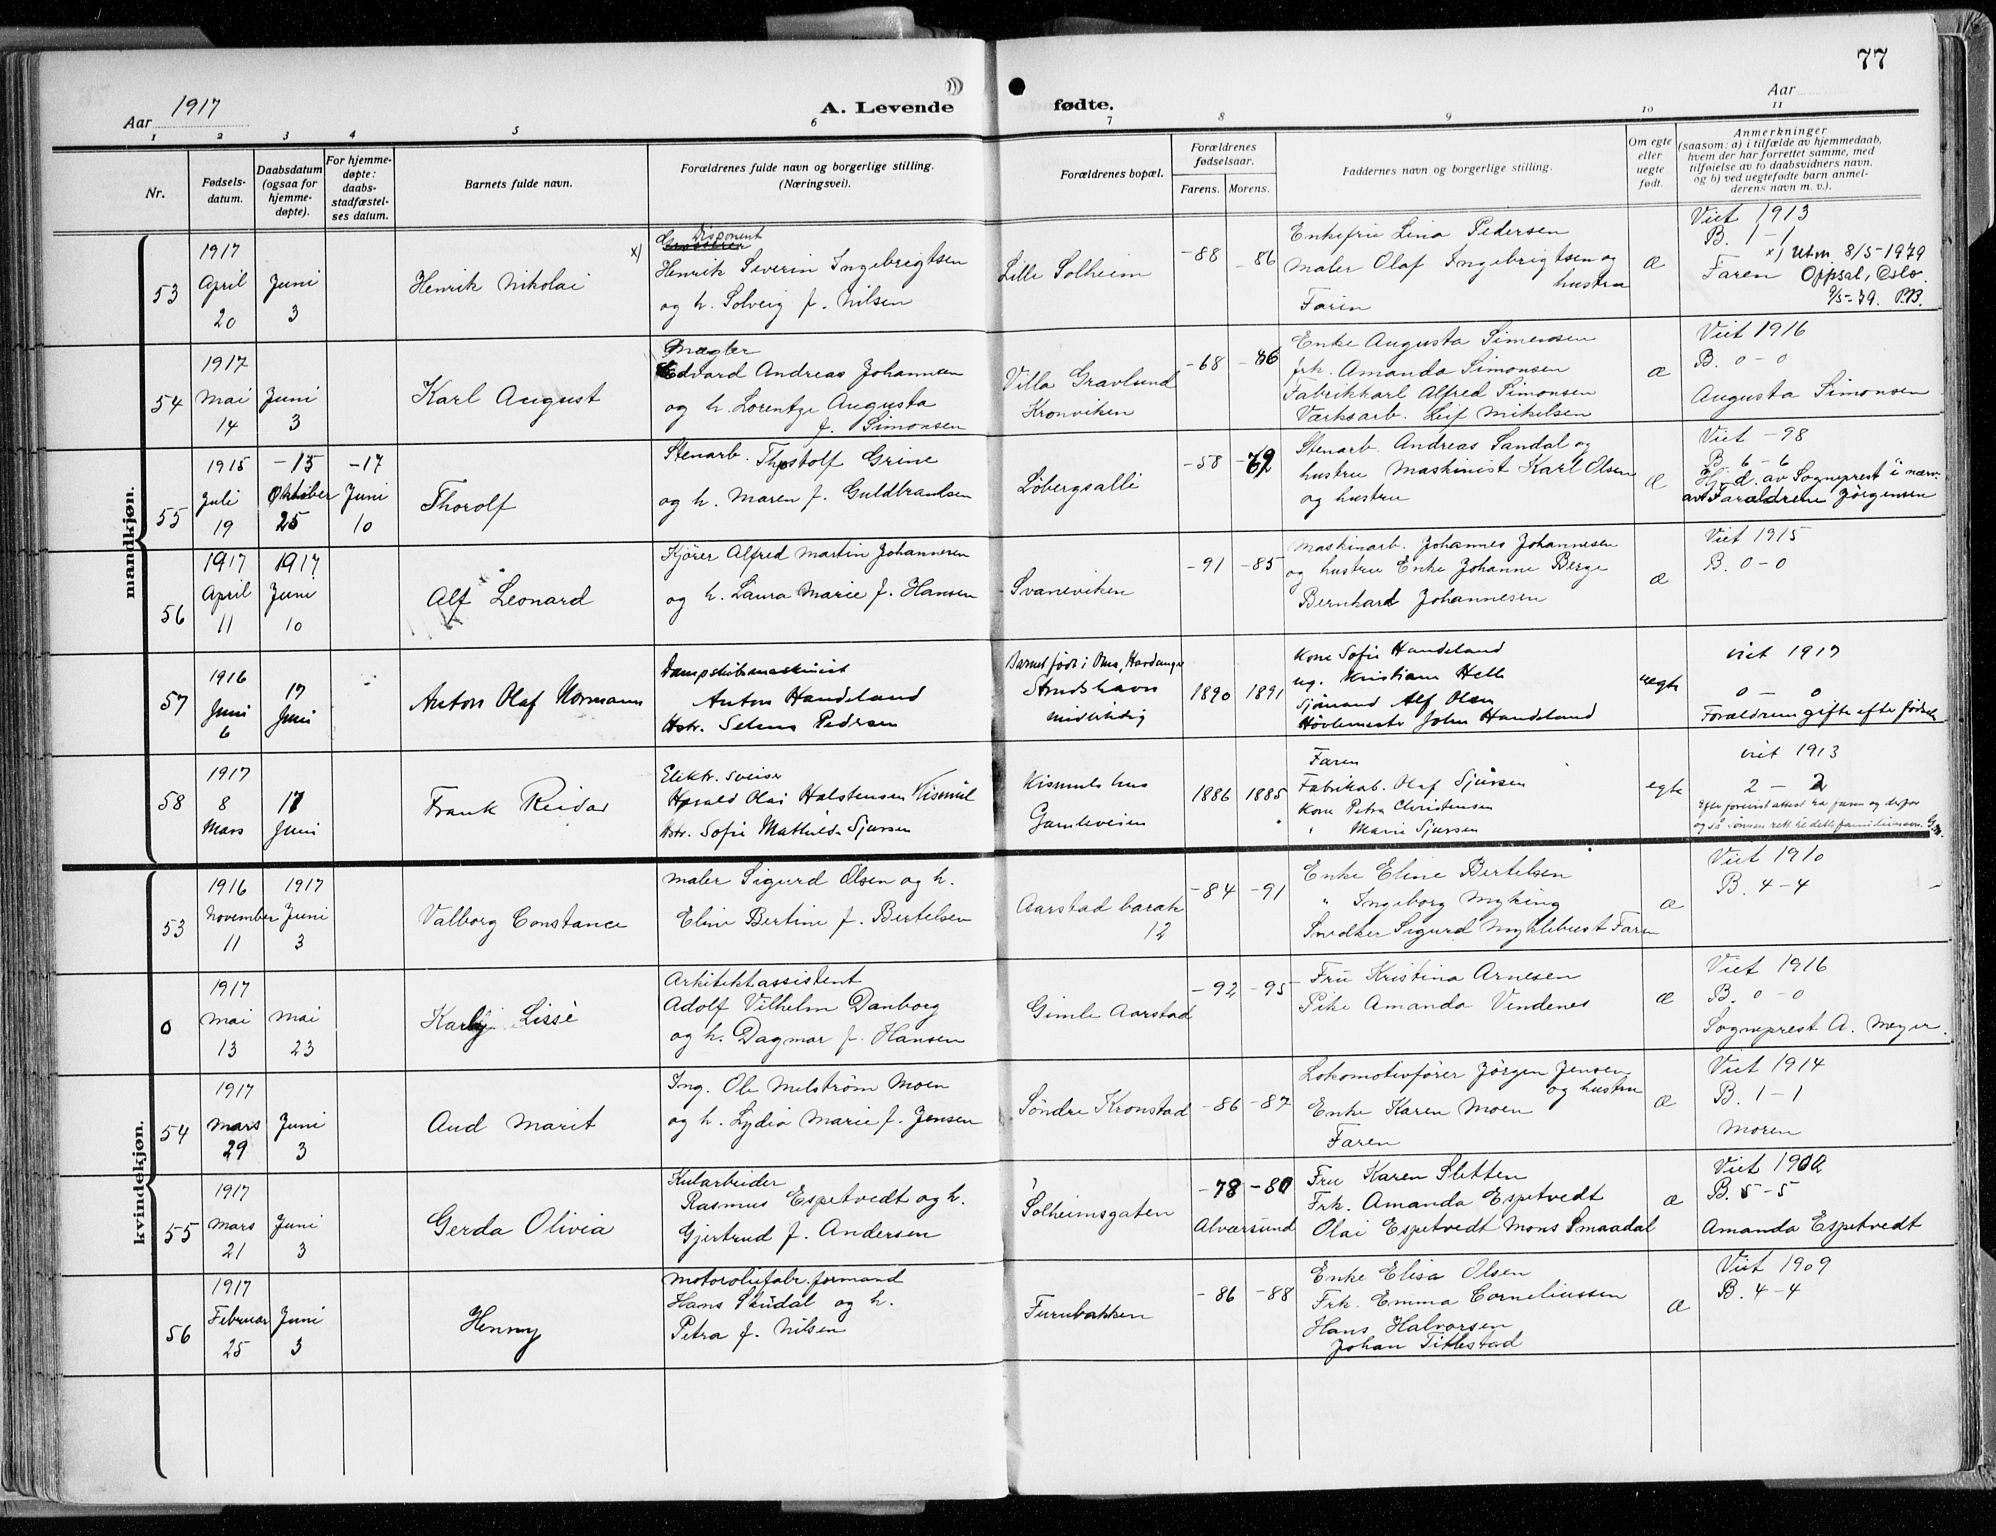 77
Aar 1917
A. Levende fødte.
Aar
1 2 3 4 5 6 7 8 9 10 11
Nr.
Fødsels-
datum.
Daabsdatum
(ogsaa for
hjemme-
døpte).
For hjemme-
døpte:
daabs-
stadfæstel-
ses datum.
Barnets fulde navn.
Forældrenes fulde navn og borgerlige stilling.
(Næringsvei).
Forældrenes bopæl.
Forældrenes
fødselsaar.
Farens. Morens.
Faddernes navn og borgerlige stilling.
Om egte
eller
uegte
født.
Anmerkninger
(saasom: a) i tilfælde av hjemmedaab,
hvem der har forrettet samme, med
tilføielse av to daabsvidners navn,
og b) ved uegtefødte barn anmel-
derens navn m. v.).
mandkjøn.
53
1917
April
20
Juni
3
Henrik Nikolai x)
Disponent
Henrik Severin Ingebrigtsen
og h. Solveig f. Nilsen
Lille Solheim
-88 -86
Enkefru Lina Pedersen
Maler Olaf Ingebrigtsen og
hustru
Faren
æ
Viet 1913
B. 1-1
x) Utm. 8/5-1979
Faren Oppsal, Oslo.
9/5-79. P.B.
54
1917
Mai
14
Juni
3
Karl August
Mægler
Edvard Andreas Johannsen
og h. Lorentze Augusta
f. Simonsen
Villa Gravlund
Kronviken
-68 -86
Enke Augusta Simonsen
frk. Amanda Simonsen
Fabrikkarl Alfred Simonsen
Værksarb. Leif Mikelsen
æ
Viet 1916
B. 0-0
Augusta Simonsen
55
1915
Juli
19
-15
Oktober
25
-17
Juni
10
Thorolf
Stenarb. Thostolf Grine
og h. Maren f. Guldbrandsen
Løbergsalle
-58
Stenarb. Andreas Sandal og
hustru Maskinist Karl Olsen
og hustru
æ
Viet -98
B. 6-6
Hj. d. av Sogneprest i nærv.
av Forældrene Jørgensen
56
1917
April
11
1917
Juni
10
Alf Leonard
Kjører Alfred Martin Johannesen
og h. Laura Marie f. Hansen
Svaneviken
-91 -85
Maskinarb. Johannes Johannesen
og hustru Enke Johanne Berge
Bernhard Johannesen
æ
Viet 1915
B. 0-0
57
1916
Juni
6
17
Juni
Anton Olaf Normann
Dampskibsmaskinist
Anton Handeland
Hstr. Selma Pedersen
Barnet født i Hardanger
Strudshavn
midlertidig
1890 1891
Kone Sofie Handeland
ug. Kristiane Helle
Sjømand Alf Olsen
Høvlemester John Handeland
uegte
viet 1917
0 - 0
Forældrene gifte efter fødsel
58
1917
8
Mars
17
Juni
Frank Reidar
Elektr. sveiser
Harald Olai Halstensen Kismul
Hstr. Sofie Mathilde Sjursen
Kismuls hus
Gamleveien
1886 1885
Faren
Fabrikab. Olaf Sjursen
Kone Petra Christensen
" Marie Sjursen
egte
viet 1913
2 - 2
Efter forevist attest har faren og derfor
og så sønnen rett til dette familienavn. G.M.
kvindekjøn.
53
1916
November
11
1917
Juni
3
Valborg Constance
Maler Sigurd Olsen og h.
Eline Bertine f. Bertelsen
Aarstad barak
12
-84 -91
Enke Eline Bertelsen
" Ingeborg Myking
Snedker Sigurd Myklebust Faren
æ
Viet 1910
B. 4-4
0
1917
Mai
13
Mai
23
Lissè
Arkitektassistent
Adolf Vilhelm Danborg
og h. Dagmar f. Hansen
Gimle Aarstad
-92 -95
Fru Kristina Arnesen
Pike Amanda Vendenes
æ
Viet 1916
B. 0-0
Sogneprest A. Meyer.
54
1917
Mars
29
Juni
3
Aud Marit
Ing. Ole Melström Moen
og h. Lydia Marie f. Jensen
Söndre Kronstad
-86 -87
Lokomotivfører Jørgen Jensen
og hustru
Enke Karen Moen
Faren
æ
Viet 1914
B. 1-1
Moren
55
1917
Mars
21
Juni
3
Gerda Olivia
Kularbeider
Rasmus Espetvedt og h.
Gjertrud f. Andersen
Solheimsgaten
-78 -80
Alversund
Fru Karen Sletten
Frk. Amanda Espetvedt
Olai Espetvedt Mons Smaadal
æ
Viet 1902
B. 5-5
Amanda Espetvedt
56
1917
Februar
25
Juni
3
Henny
Motoroliefabr. formand
Hans Skudal og h.
Petra f. Nilsen
Furubakken
-86 -88
Enke Elisa Olsen
Frk. Emma Corneliussen
Hans Halvorsen
Johan Titlestad
æ
Viet 1909
B. 4-4